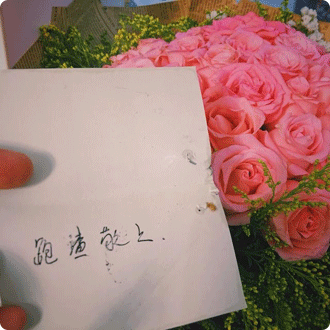 跑渣敬上.